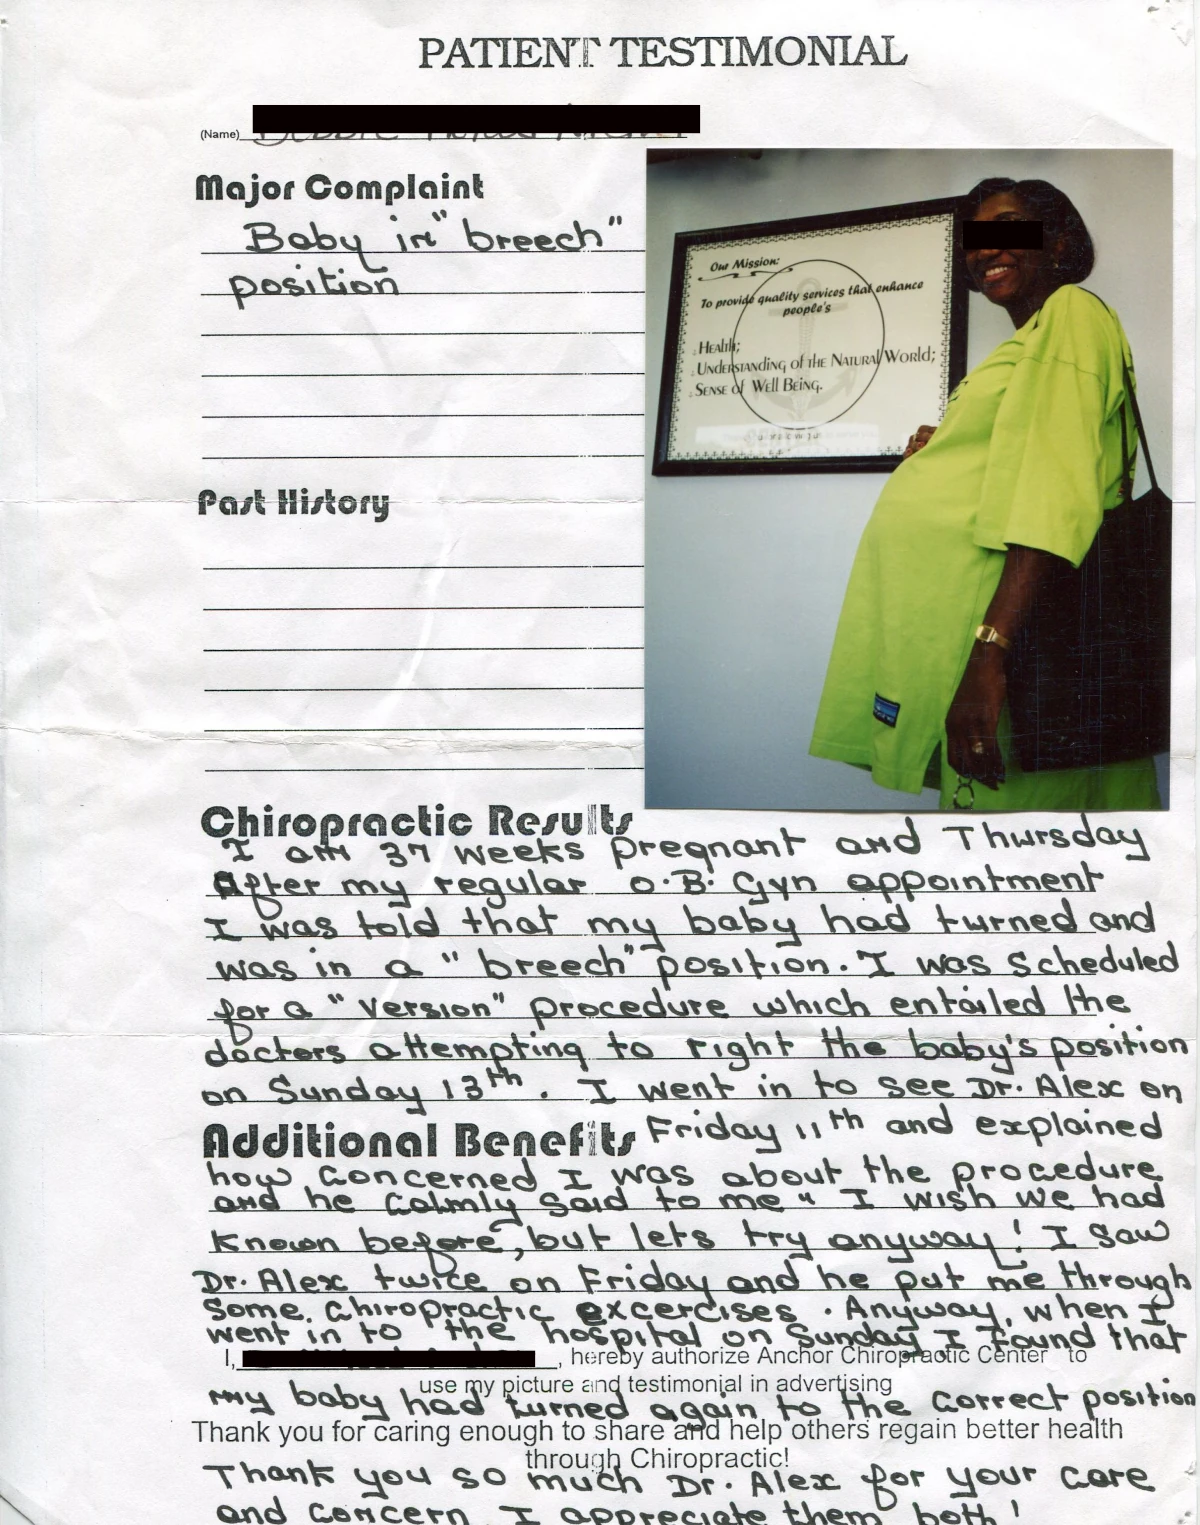 PATIENT TESTIMONIAL
(Name)
Major Complaint
Baby in "breech"
position
Our Mission:
To provide quality services that enhance
people's
Health;
Understanding of the Natural World;
Sense of Well Being.
Past History
Chiropractic Results
I am 37 weeks pregnant and Thursday
After my regular O.B. Gyn appointment
I was told that my baby had turned and
was in a "breech" position. I was scheduled
for a "Version" procedure which entailed the
doctors attempting to right the baby's position
on Sunday 13th. I went in to see Dr. Alex on
Additional Benefits Friday 11th and explained
how concerned I was about the procedure
and he calmly said to me "I wish we had
known before", but lets try anyway! I saw
Dr. Alex twice on Friday and he put me through
some chiropractic excercises. Anyway, when I
went in to the hospital on Sunday I found that
I, , hereby authorize Anchor Chiropractic Center to
use my picture and testimonial in advertising
my baby had turned again to the correct position
Thank you for caring enough to share and help others regain better health
through Chiropractic!
Thank you so much Dr. Alex for your care
and concern I appreciate them both!